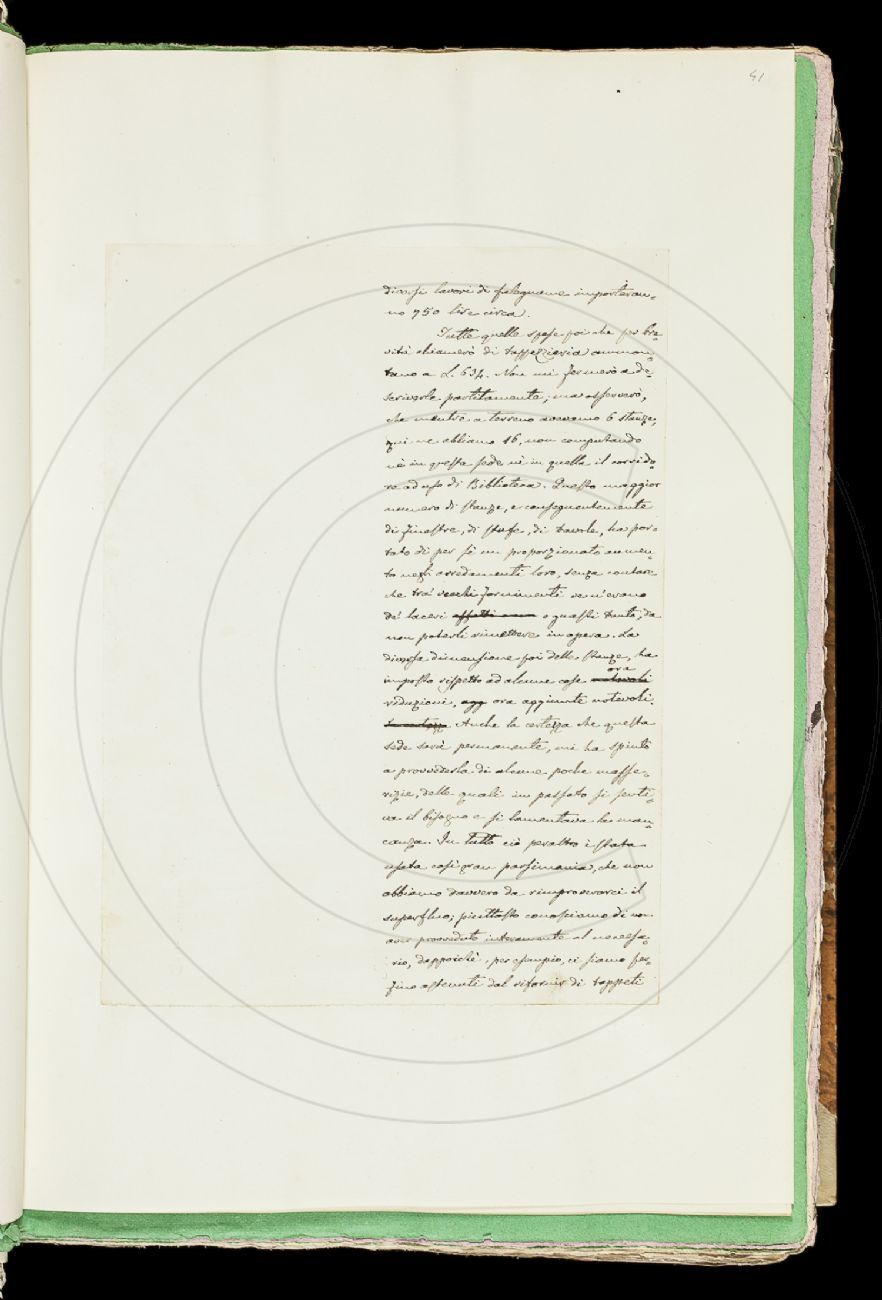 41
diversi lavori di falegname importeran-
no 750 lire circa.
Tutte quelle spese poi che per bre-
vità chiamerò di tappezzieria ammon-
tano a L. 634. Non mi fermerò a de-
scriverle partitamente; ma osserverò,
che mentre a terreno avevamo 6 stanze,
qui ne abbiamo 16, non computando
nè in questa sede nè in quella il corrido-
re ad uso di Biblioteca. Questo maggior
numero di stanze, e conseguentemente
di finestre, di stufe, di tavole, ha por-
tato di per sè un proporzionato aumen-
to negli arredamenti loro, senza contare
che tra' vecchi fornimenti ve n'erano
de' laceri o guasti tanto, da
non poterli rimettere in opera. La
diversa dimensione poi delle stanze, ha
imposto rispetto ad alcune cose ora
riduzioni, ora aggiunte notevoli.
Anche la certezza che questa
sede sarà permanente, mi ha spinto
a provvederla di alcune poche masse-
rizie, delle quali in passato si senti-
va il bisogno e si lamentava la man-
canza. In tutto ciò peraltro è stata
usata così gran parsimonia, che non
abbiamo davvero da rimproverarci il
superfluo; piuttosto conosciamo di non
aver provveduto interamente al necessa-
rio, dappoichè, per esempio, ci siamo per-
fino astenuti dal rifornir di tappeti